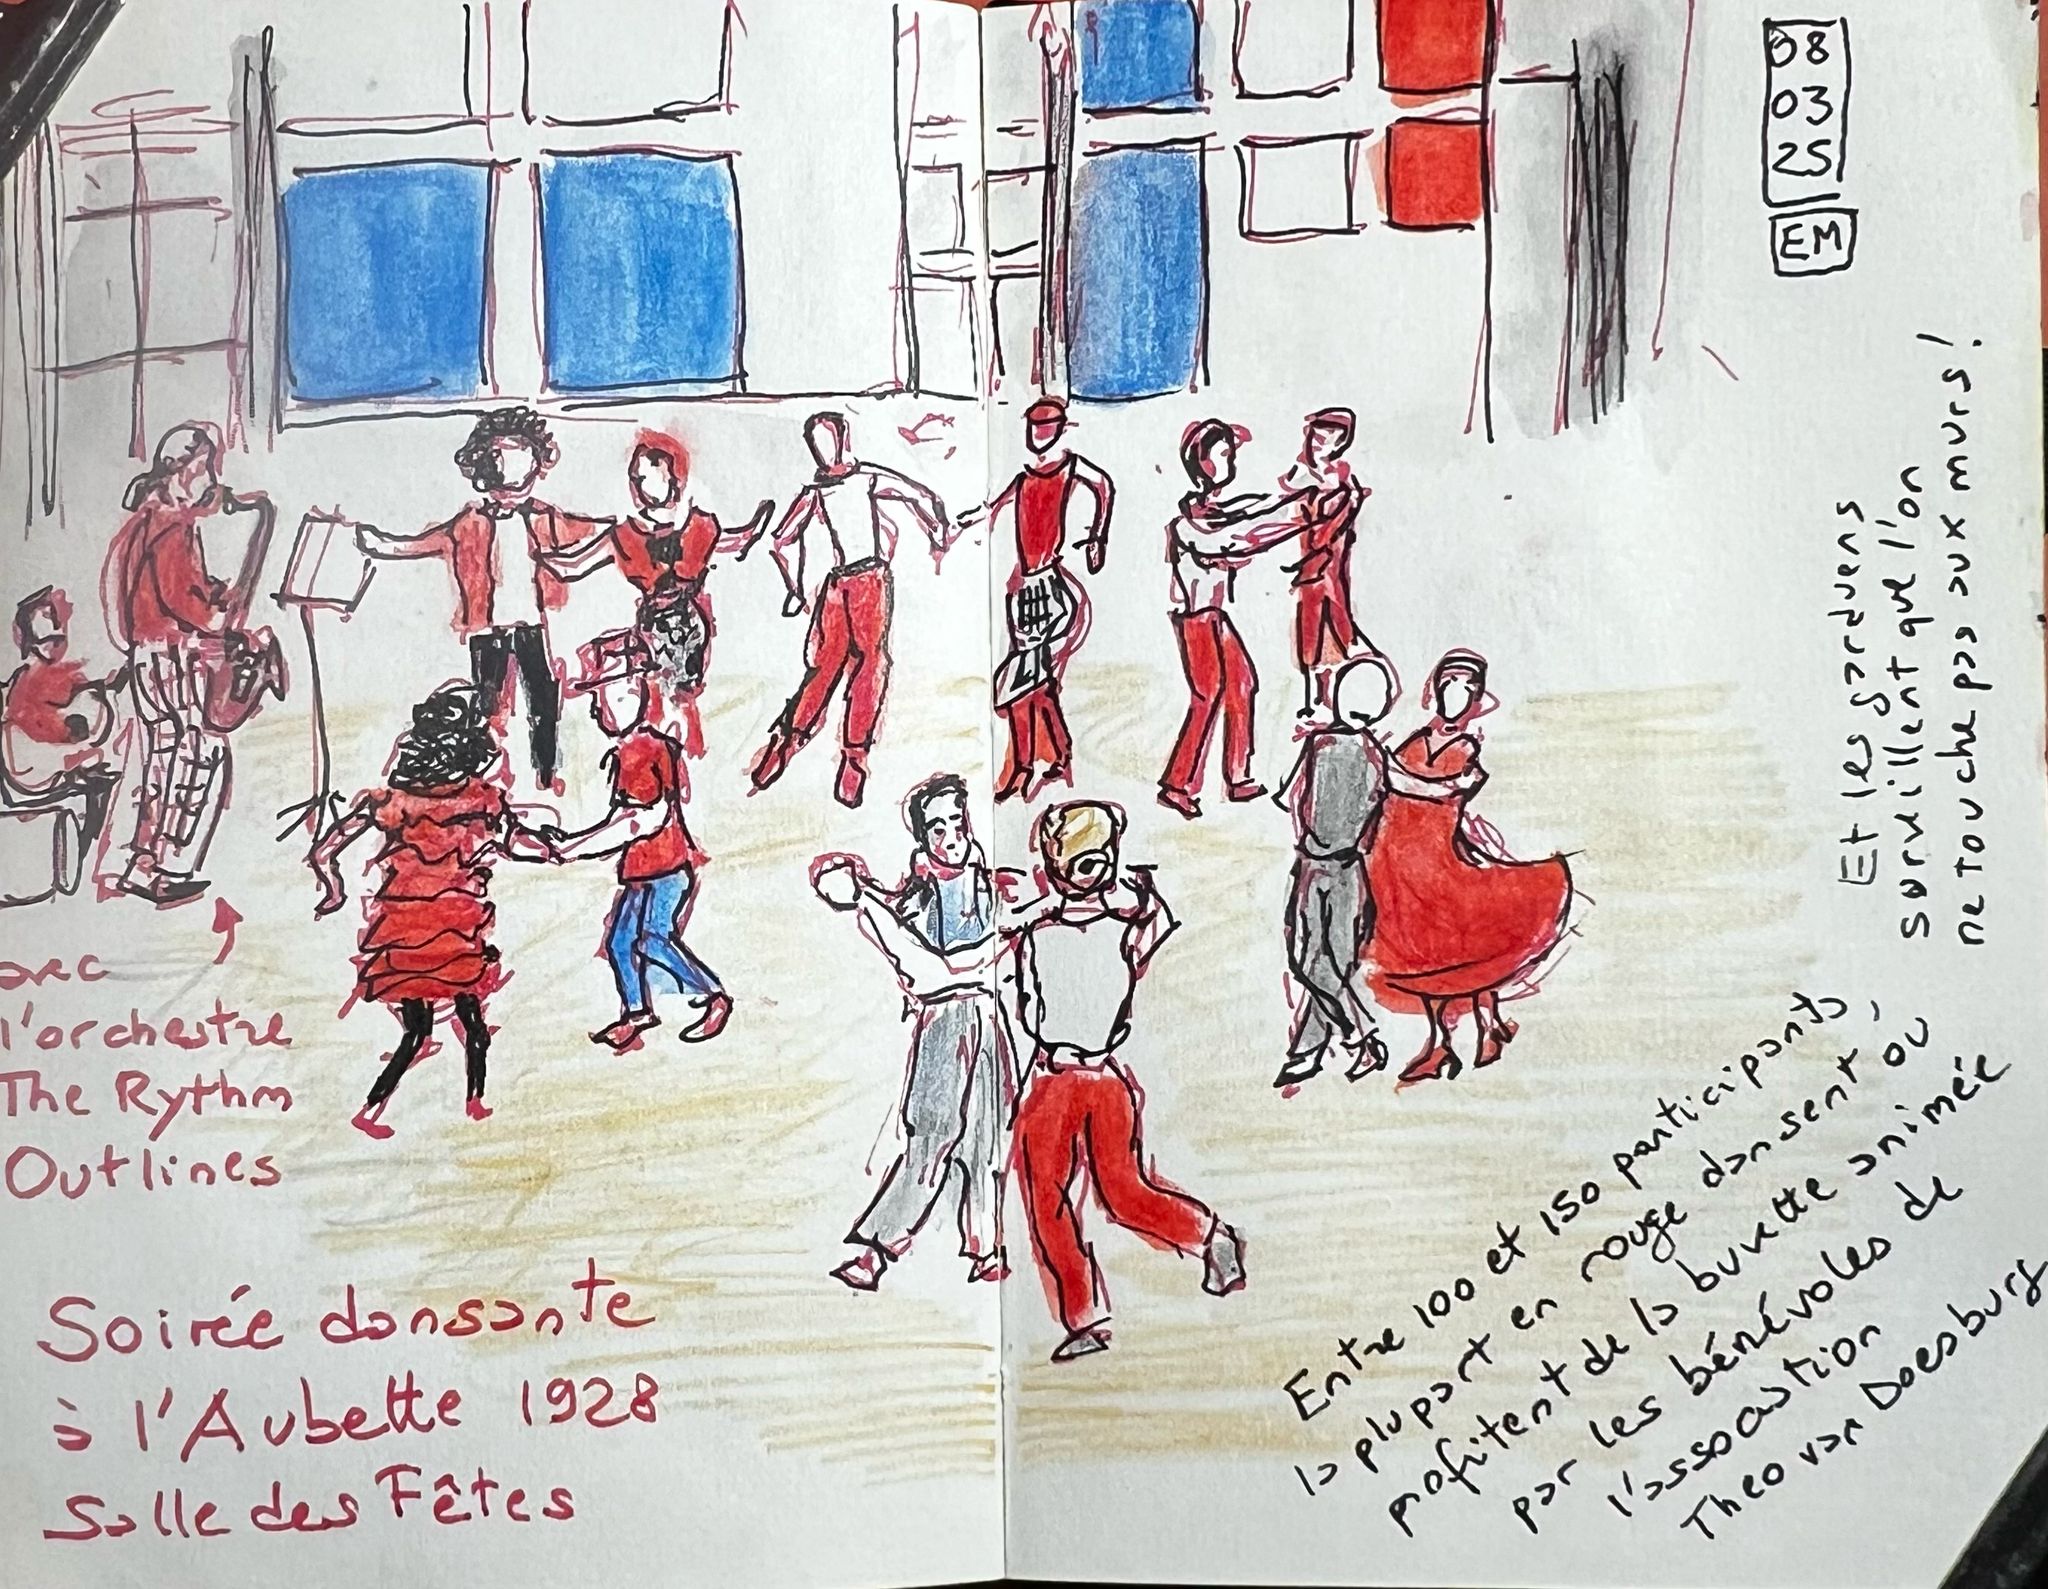 08
03
25
EM
avec
l'orchestre
The Rythm
Outlines
Soirée dansante
à l'Aubette 1928
Salle des Fêtes
Et les gardiens
surveillent que l'on
ne touche pas aux murs !
Entre 100 et 150 participants
la plupart en rouge dansent où
profitent de la buvette animée
par les bénévoles de
l'association
Theo van Doesburg